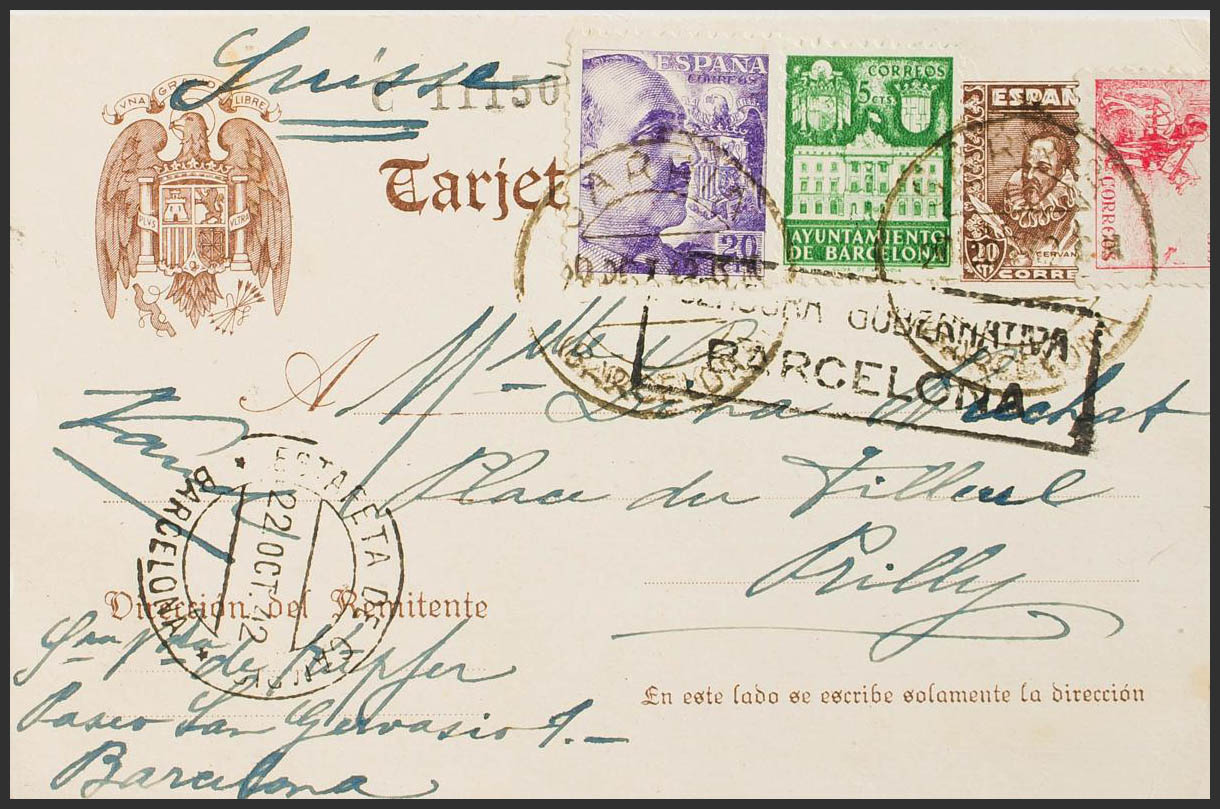 Suisse
UNA GRANDE LIBRE
C 11150
PLVS VLTRA
Tarjet
ESPAÑA
CORREOS
20
CORREOS
5 CTS.
AYUNTAMIENTO
DE BARCELONA
ESPAÑ
20
CERVAN
CORRE
CORREOS
CENSURA GUBERNATIVA
BARCELONA
A Mlle
Place du Tilleul
Prilly
ESTAFETA DE
22 OCT. 42
BARCELONA
Dirección del Remitente
de Küpfer
Paseo San Gervasio 1.—
Barcelona
En este lado se escribe solamente la dirección